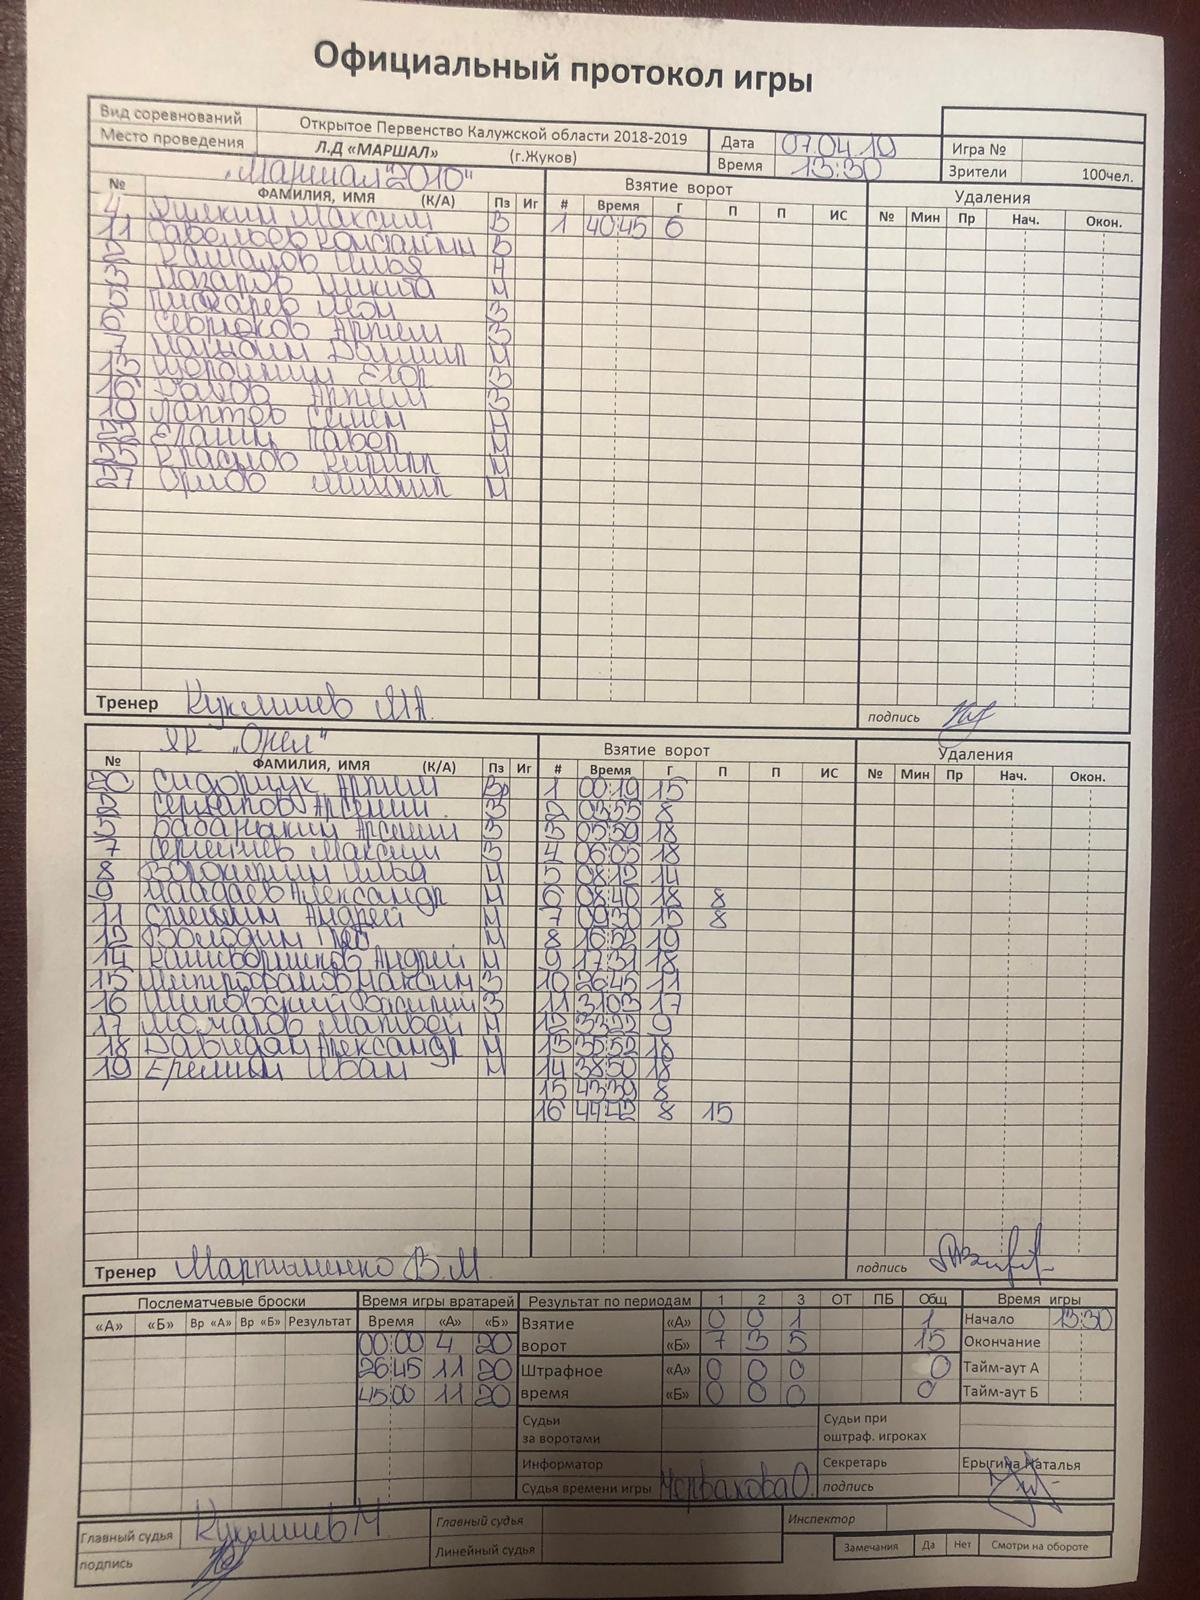 Официальный протокол игры
Вид соревнований Открытое Первенство Калужской области 2018-2019 Дата 07.04.19 Игра №
Место проведения Л.Д «МАРШАЛ» (г.Жуков) Время 13:30 Зрители 100чел.
„Маршал 2010"
Взятие ворот Удаления
№ ФАМИЛИЯ, ИМЯ (К/А) Пз Иг # Время Г П П ИС № Мин Пр Нач. Окон.
4 Максим В 1 40:45 6
11 Савельев Константин В
2 Илья Н
3 Назаров Никита Н
5 Пискарев З
6 Севрюков Артем З
7 Даниил Н
13 Щербинин Егор З
16 Артем З
19 Лаптев Семен Н
22 Елагин Павел Н
25 Краснов Кирилл Н
27 Орлов Михаил Н
Тренер Куклишев М.А. подпись
„Орел"
Взятие ворот Удаления
№ ФАМИЛИЯ, ИМЯ (К/А) Пз Иг # Время Г П П ИС № Мин Пр Нач. Окон.
20 Сидорчук Артем Вр 1 00:19 15
2 Арсений З 2 03:55 8
5 Арсений З 3 05:59 18
7 Максим З 4 06:05 18
8 Илья Н 5 08:12 14
9 Александр Н 6 08:40 18 8
11 Андрей Н 7 09:30 15 8
12 Володин Глеб Н 8 16:52 19
14 Андрей Н 9 17:31 18
15 Митрофанов Максим З 10 26:45 11
16 Василий З 11 31:03 17
17 Матвей Н 12 33:22 9
18 Давидан Александр Н 13 35:52 18
19 Еремин Иван Н 14 38:50 18
15 43:39 8
16 44:42 8 15
Тренер Мартыненко В.М. подпись
Послематчевые броски Время игры вратарей Результат по периодам 1 2 3 ОТ ПБ Общ Время игры
«А» «Б» Вр «А» Вр «Б» Результат Время «А» «Б» Взятие «А» 0 0 1 1 Начало 13:30
00:00 4 20 ворот «Б» 7 3 5 15 Окончание
26:45 11 20 Штрафное «А» 0 0 0 0 Тайм-аут А
45:00 11 20 время «Б» 0 0 0 0 Тайм-аут Б
Судьи за воротами Судьи при оштраф. игроках
Информатор Секретарь Ерыгина Наталья
Судья времени игры Червакова О. подпись
Главный судья Куклишев М Главный судья Инспектор
подпись Линейный судья Замечания Да Нет Смотри на обороте